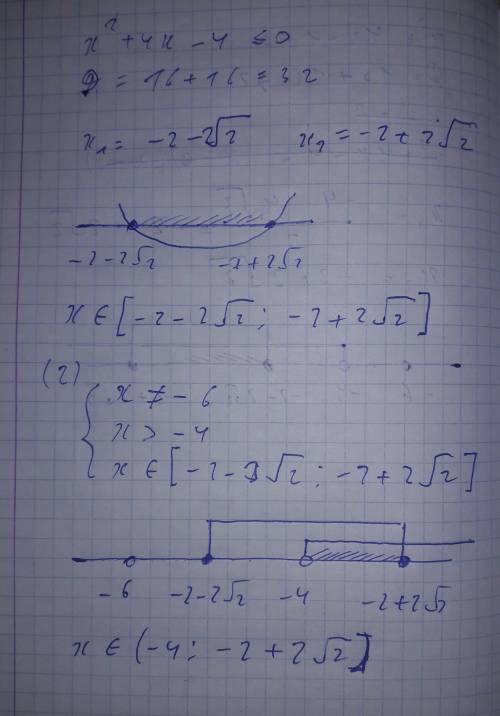 x² + 4x - 4 ≤ 0
D = 16 + 16 = 32
x₁ = -2 - 2√2 x₂ = -2 + 2√2
-2 - 2√2 -2 + 2√2
x ∈ [-2 - 2√2 ; -2 + 2√2]
(2)
x ≠ -6
x > -4
x ∈ [-2 - 2√2 ; -2 + 2√2]
-6 -2-2√2 -4 -2+2√2
x ∈ (-4 ; -2 + 2√2]